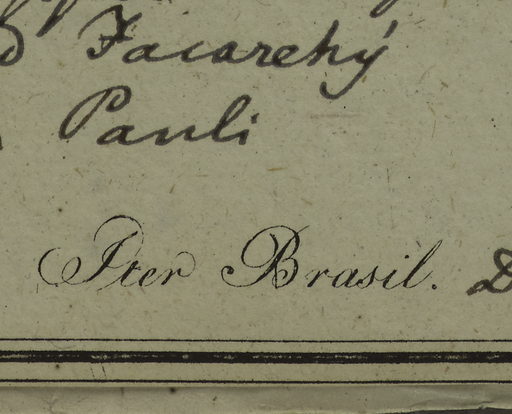 Jacarehý
Pauli
Iter Brasil. D